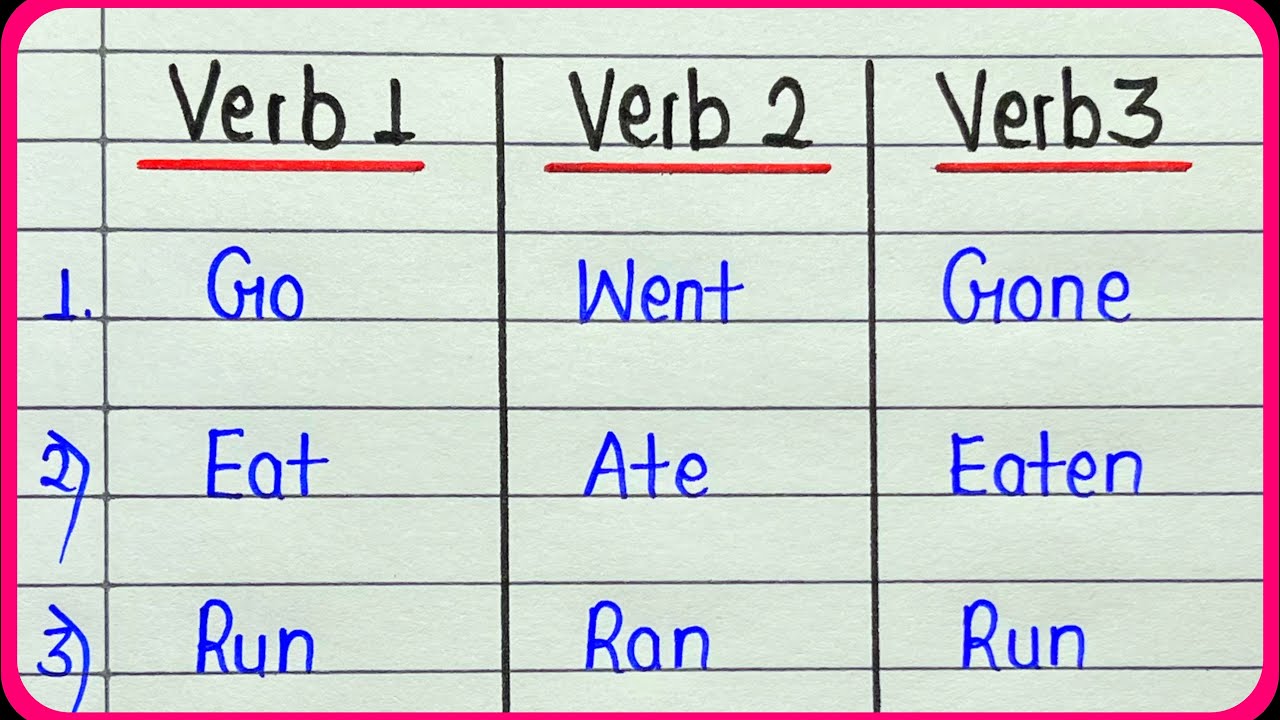 Verb 1 Verb 2 Verb 3
1. Go Went Gone
2) Eat Ate Eaten
3) Run Ran Run